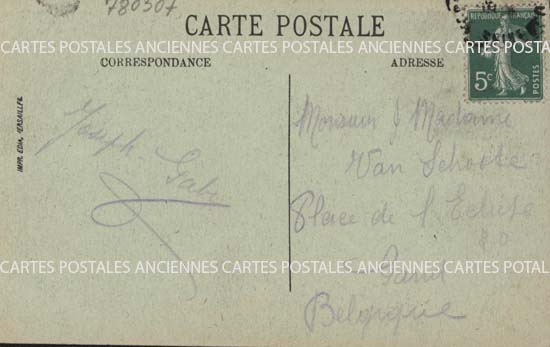 780307
CARTE POSTALE
CARTES POSTALES ANCIENNES CARTES POSTALES ANCIENNES CARTES POSTALES ANCIENNES
CORRESPONDANCE
ADRESSE
REPUBLIQUE FRANÇAISE
5c
POSTES
IMPR. EDIA, VERSAILLES
Joseph Gabr
Monsieur & Madame
Van Schoote
Place de l'Ecluse
Gand
CARTES POSTALES ANCIENNES CARTES POSTALES ANCIENNES CARTES POTAL
Belgique